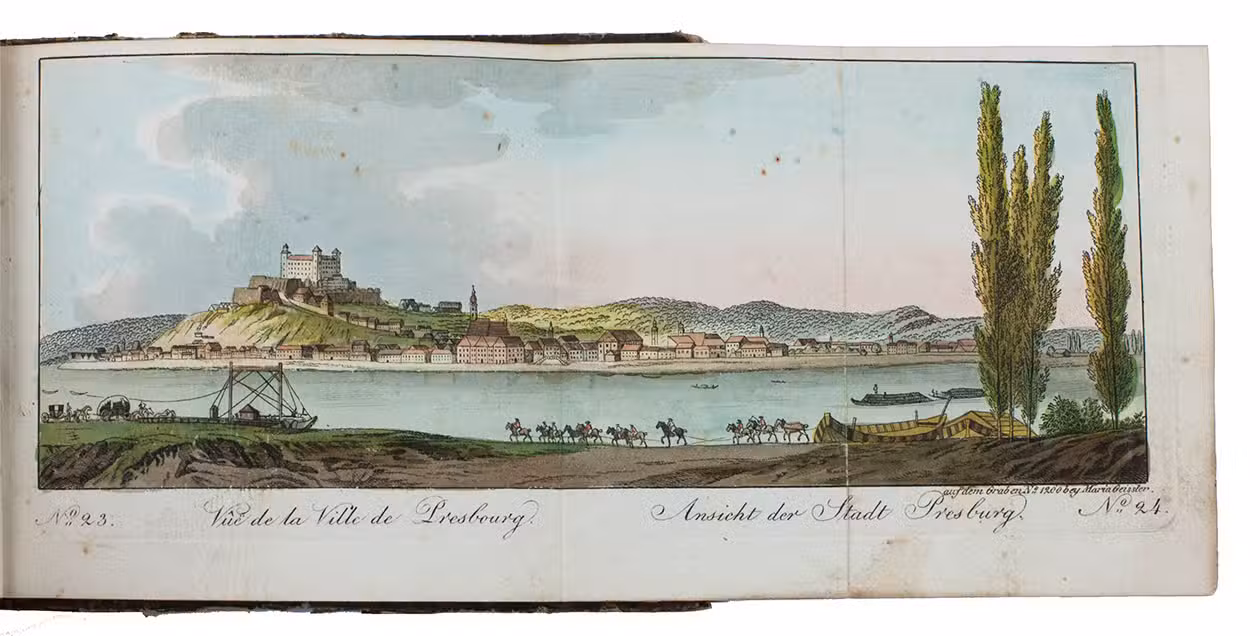 auf dem Graben Nº 1200 bey Maria Geissler.
Nº 23. Vûe de la Ville de Presbourg. Ansicht der Stadt Presburg. Nº 24.